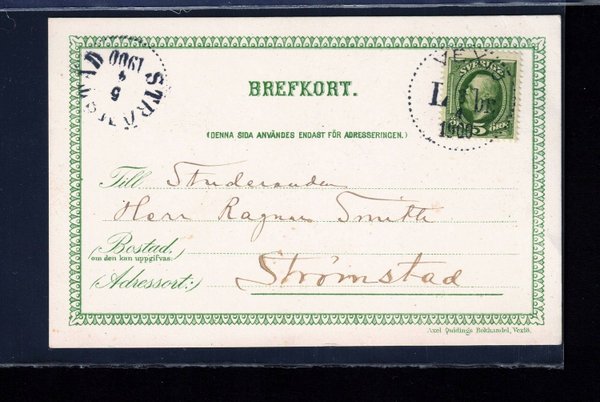 STRÖMSTAD
5
4
1900
BREFKORT.
SVERIGE
1900
5 ÖRE
(DENNA SIDA ANVÄNDES ENDAST FÖR ADRESSERINGEN.)
Till Studeranden
Herr Ragnar Smith
(Bostad,
om den kan uppgifvas.)
(Adressort:) Strömstad
Axel Quiddings Bokhandel, Vexiö.